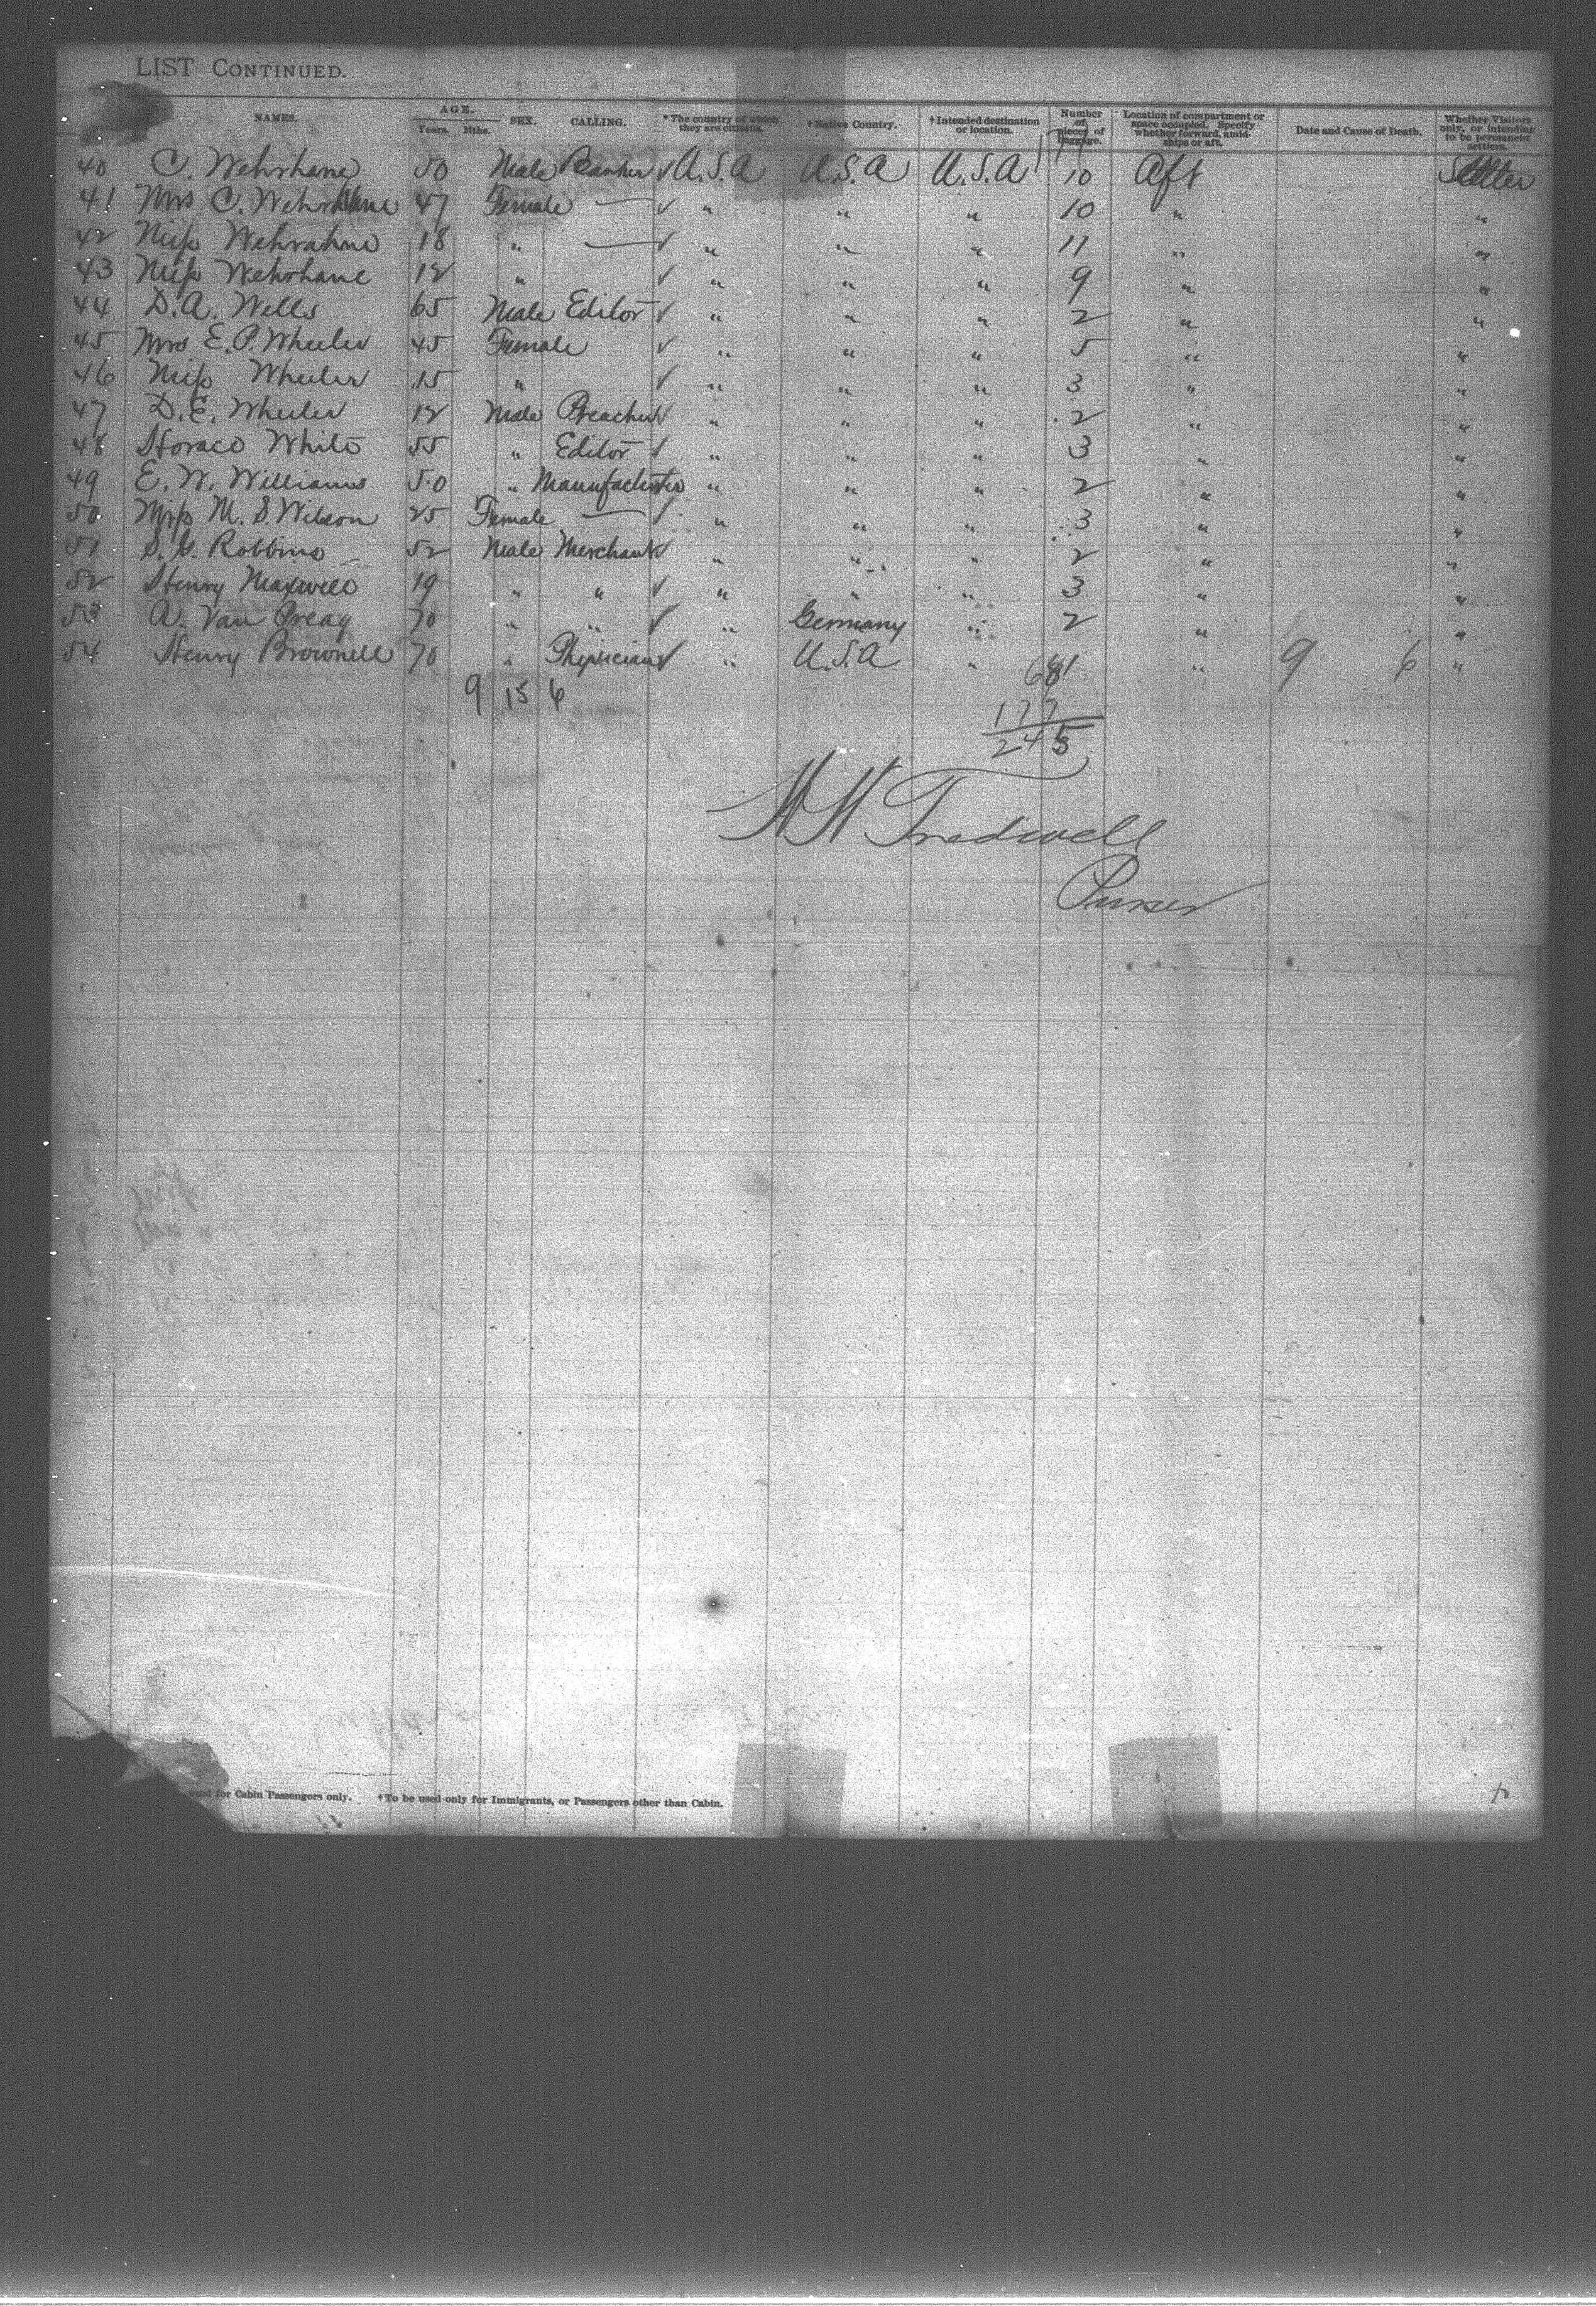 LIST CONTINUED.
NAMES. AGE. Years. Mths. SEX. CALLING. * The country of which they are citizens. † Native Country. † Intended destination or location. Number of pieces of baggage. Location of compartment or space occupied. Specify whether forward, amidships or aft. Date and Cause of Death. Whether Visitors only, or intending to be permanent settlers.
177
40 C. Wehrhane 50 Male Banker ✓ U.S.A U.S.A U.S.A 10 Aft Settler
41 Mrs C. Wehrhane 47 Female — ✓ " " " 10 " "
42 Miss Wehrahne 18 " — ✓ " " " 11 " "
43 Miss Wehrhane 12 " ✓ " " " 9 " "
44 D.A. Wells 65 Male Editor ✓ " " " 2 " "
45 Mrs E.P. Wheeler 45 Female ✓ " " " 5 " "
46 Miss Wheeler 15 " ✓ " " " 3 " "
47 D.E. Wheeler 12 Male Preacher ✓ " " " 2 " "
48 Horace White 55 " Editor ✓ " " " 3 " "
49 E.W. Williams 50 " Manufacturer " " " 2 " "
50 Miss M.S. Wilson 25 Female — ✓ " " " 3 " "
51 S.G. Robbins 52 Male Merchant ✓ " " " 2 " "
52 Henry Maxwell 19 " " ✓ " " " 3 " "
53 A. Van Preag 70 " " ✓ " Germany " 2 " "
54 Henry Brownell 70 " Physician ✓ " U.S.A " 1 " 9 6 "
68
9 15 6
177
245
H H Tredwell
Purser
ed for Cabin Passengers only. † To be used only for Immigrants, or Passengers other than Cabin.